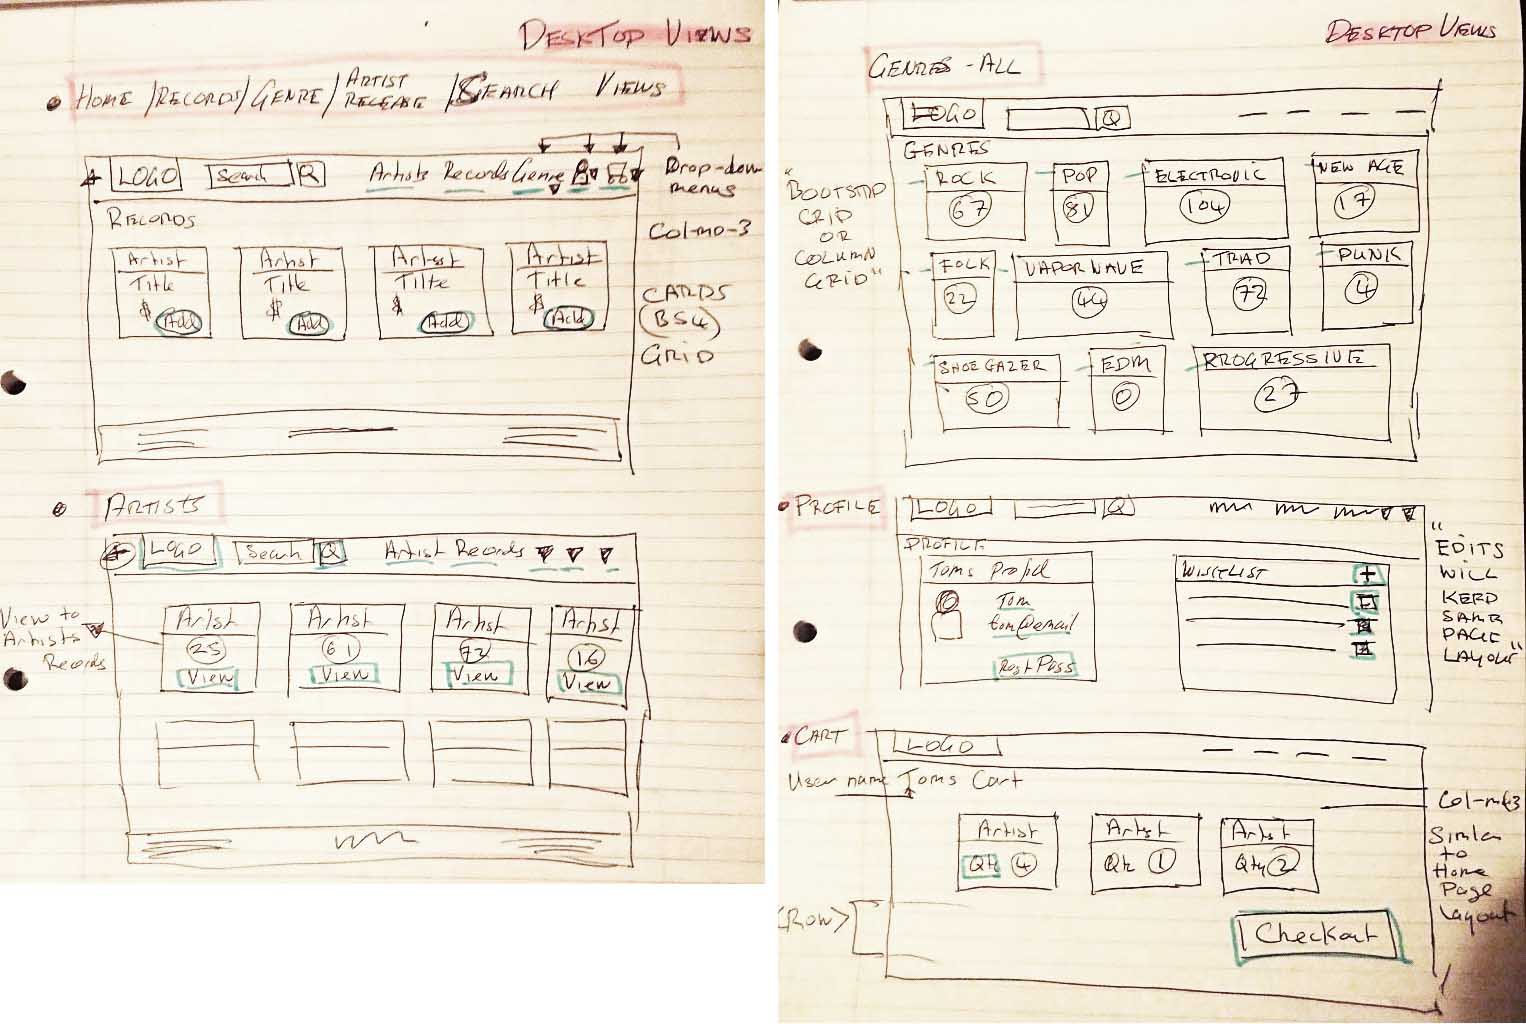 DESKTOP VIEWS
HOME /RECORDS/ GENRE / ARTIST RELEASE / SEARCH VIEWS
LOGO Search Q Artists Records Genre
Drop-down menus
RECORDS
Col-md-3
Artist Artist Artist Artist
Title Title Tilte Title
$ Add $ Add $ Add $ Add
CARDS
(BS4)
GRID
ARTISTS
LOGO Search Q Artist Records
View to
Artists
Records
Artist Artist Artist Artist
25 61 72 16
View View View View
DESKTOP VIEWS
GENRES - ALL
LOGO Q
GENRES
"BOOTSTRAP
GRID
OR
COLUMN
GRID"
ROCK POP ELECTRONIC NEW AGE
67 81 104 17
FOLK VAPORWAVE TRAD PUNK
22 44 72 4
SHOEGAZER EDM PROGRESSIVE
50 0 27
PROFILE
LOGO Q
PROFILE
Toms Profile
Tom
tom@email
WISHLIST +
"EDITS
WILL
SAME
PAGE
LAYOUT"
CART
LOGO
User name Toms Cart
Artist Artist Artist
Qty 4 Qty 1 Qty 2
Col-md-3
Similar
to
Home
Page
Layout
<Row>
Checkout